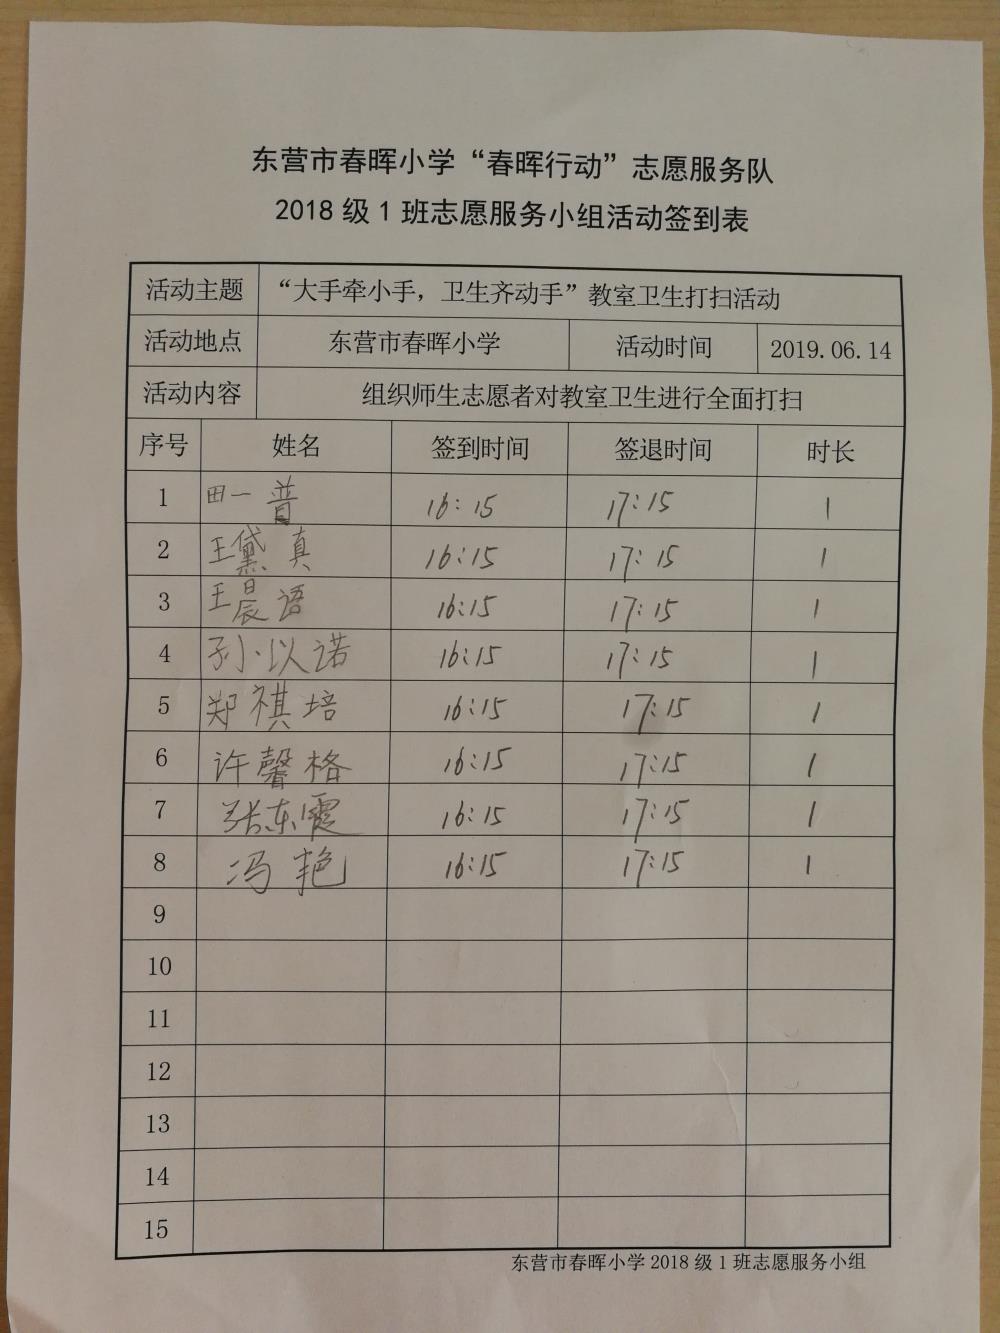 东营市春晖小学“春晖行动”志愿服务队
2018级1班志愿服务小组活动签到表
活动主题 “大手牵小手，卫生齐动手”教室卫生打扫活动
活动地点 东营市春晖小学 活动时间 2019.06.14
活动内容 组织师生志愿者对教室卫生进行全面打扫
序号 姓名 签到时间 签退时间 时长
1 田一普 16:15 17:15 1
2 王黛真 16:15 17:15 1
3 王晨语 16:15 17:15 1
4 孙以诺 16:15 17:15 1
5 郑祺培 16:15 17:15 1
6 许馨格 16:15 17:15 1
7 张东霞 16:15 17:15 1
8 冯艳 16:15 17:15 1
9
10
11
12
13
14
15
东营市春晖小学2018级1班志愿服务小组